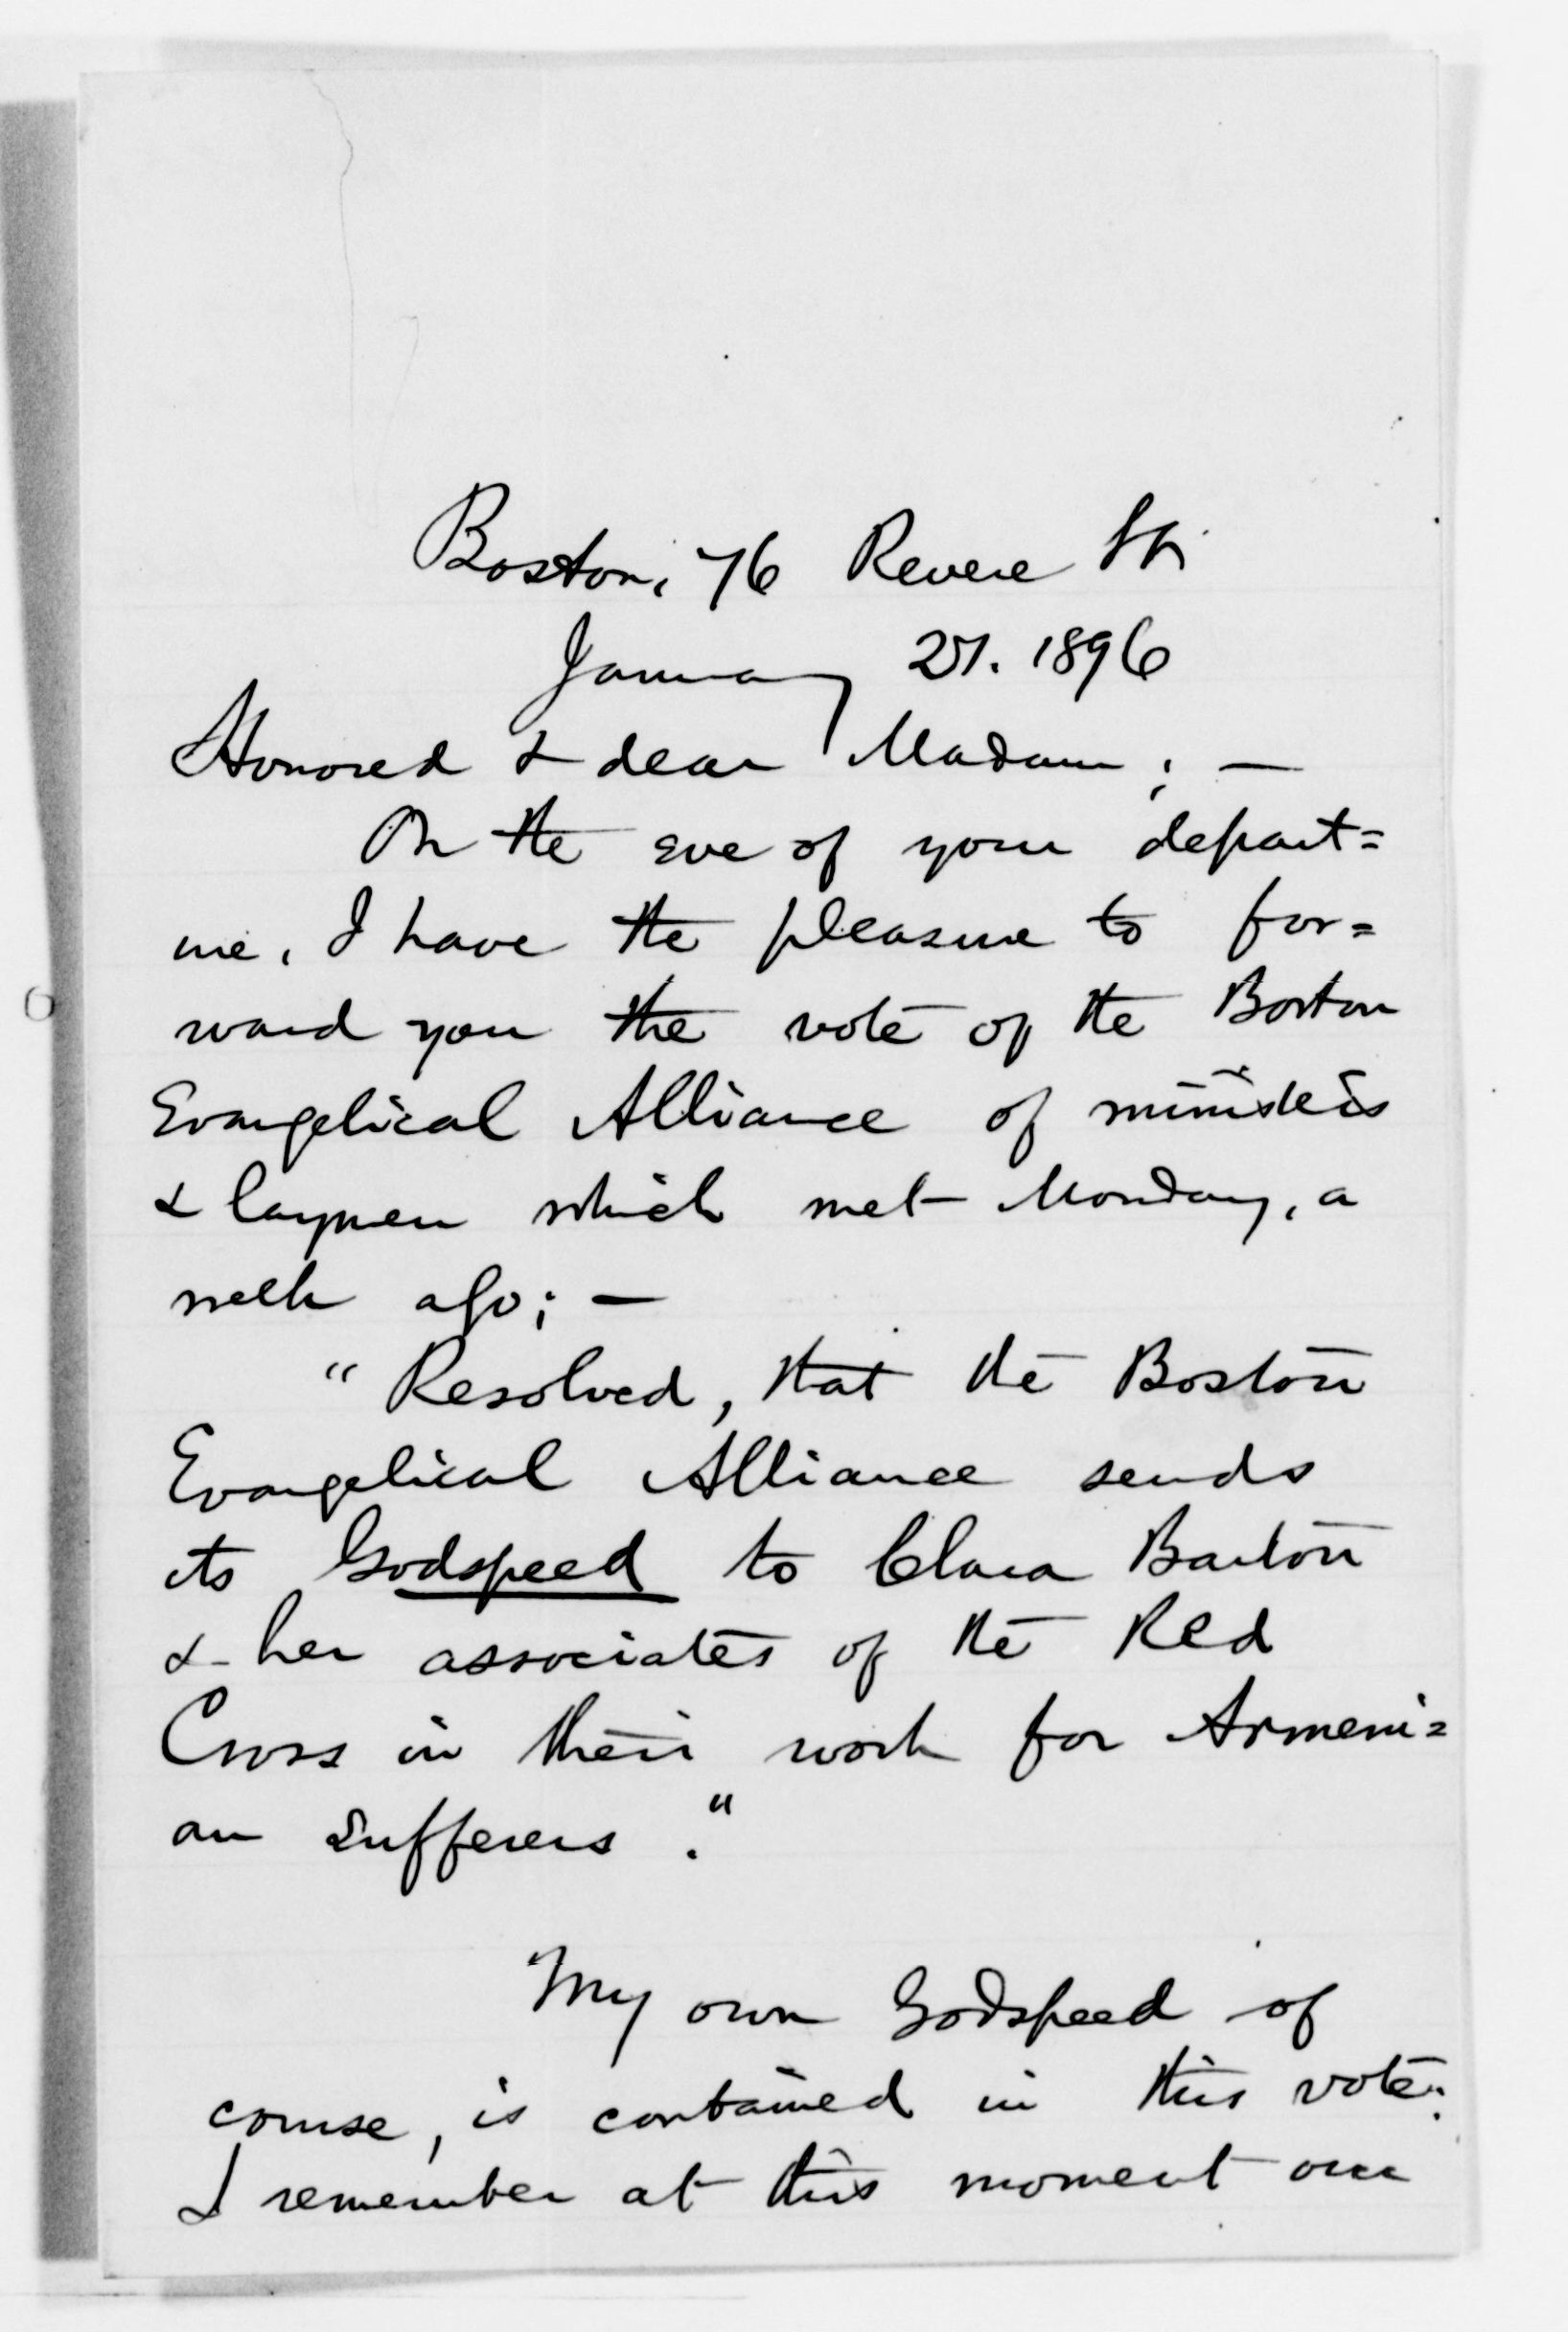 Boston, 76 Revere St.
January 27. 1896
Honored & dear Madam; —
On the eve of your depart=
ure, I have the pleasure to for=
ward you the vote of the Boston
Evangelical Alliance of ministers
& laymen which met Monday, a
week ago; —
"Resolved, that the Boston
Evangelical Alliance sends
its Godspeed to Clara Barton
& her associates of the Red
Cross in their work for Armeni=
an Sufferers."
My own Godspeed of
course, is contained in this vote.
I remember at this moment our